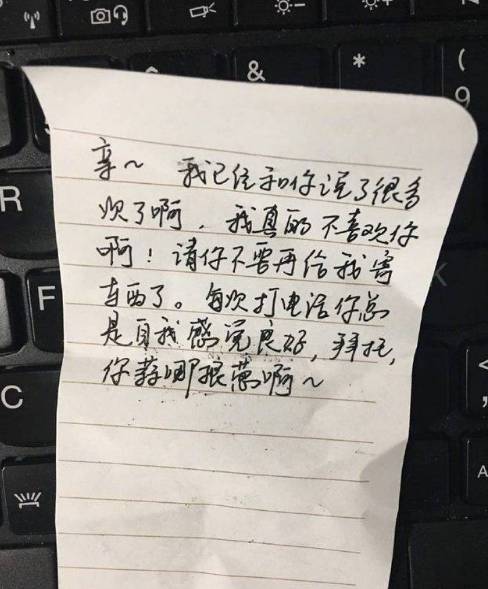 &
*
(
9
亲~ 我已经和你说了很多
R
次了啊，我真的不喜欢你
啊！请你不要再给我寄
F
东西了。每次打电话你总
K
是自我感觉良好，拜托，
<
C
你蒜哪根葱啊~
A